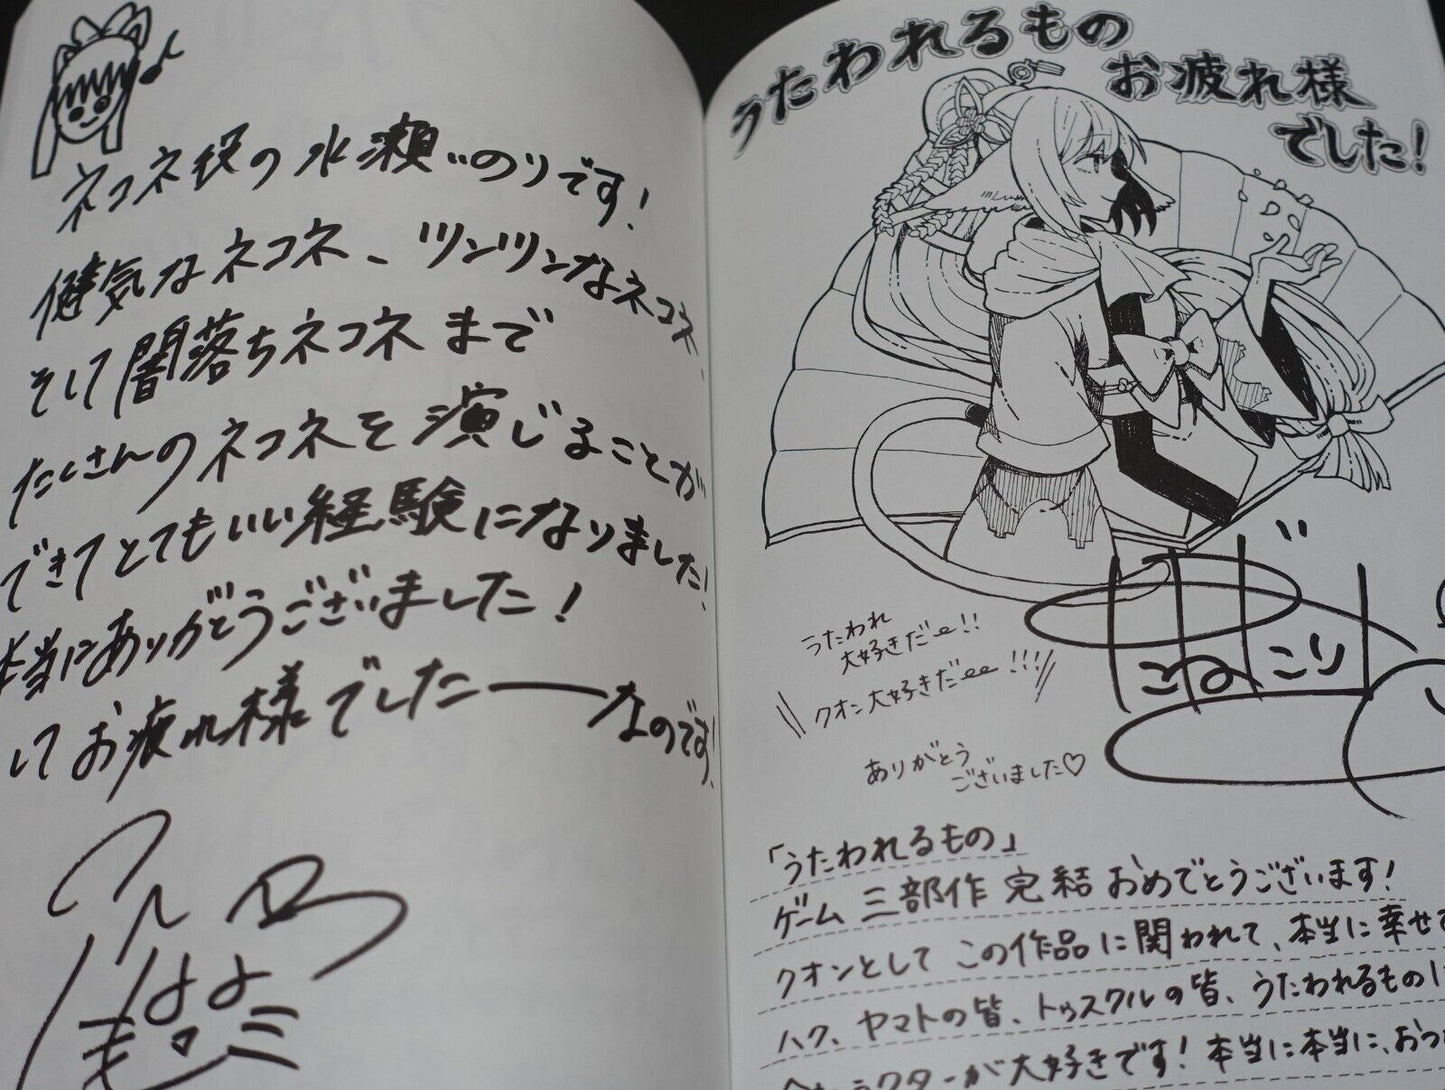 ネコネ役の水瀬いのりです!
健気なネコネ、ツンツンなネコネ
そして闇落ちネコネまで
たくさんのネコネを演じることが
できてとてもいい経験になりました!
本当にありがとうございました!
してお疲れ様でしたーなのです
うたわれるもの
お疲れ様
でした!
うたわれ
大好きだー!!
クオン大好きだー!!!
ありがとう
ございました♡
「うたわれるもの」
ゲーム三部作完結おめでとうございます!
クオンとしてこの作品に関われて、本当に幸せ
ハク、ヤマトの皆、トゥスクルの皆、うたわれるもの
が大好きです!本当に本当に、おつ